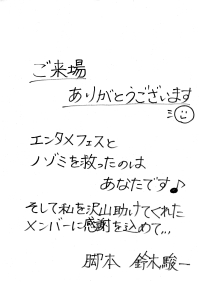 ご来場
ありがとうございます
エンタメフェスと
ノゾミを救ったのは
あなたです♪
そして私を沢山助けてくれた
メンバーに感謝を込めて…
脚本 鈴木駿一